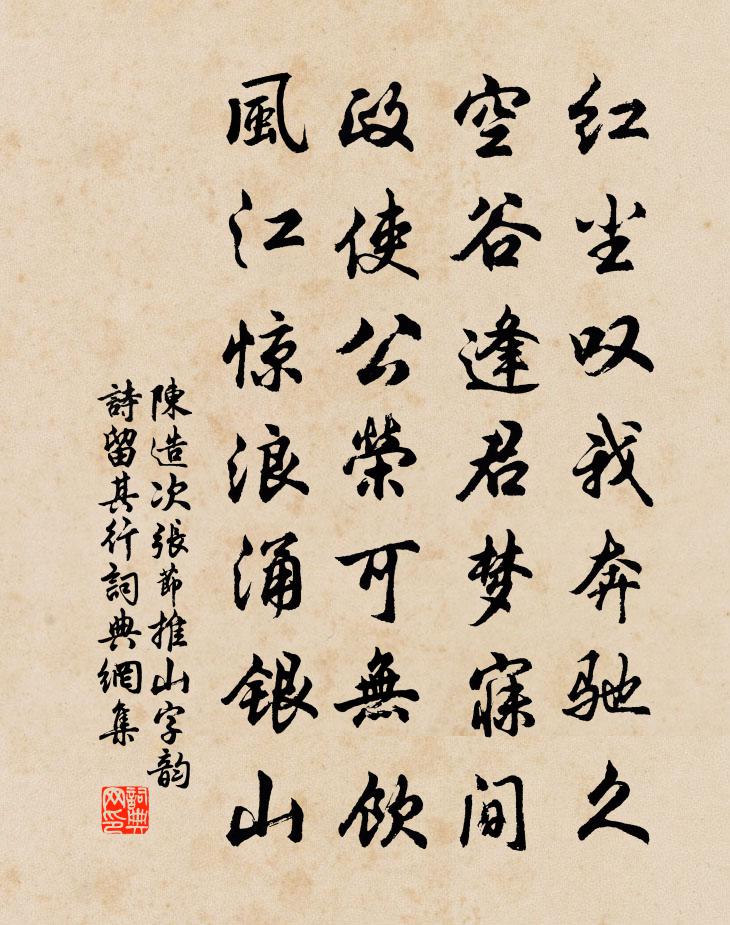 红尘叹我奔驰久
空谷逢君梦寐间
政使公荣可無飲
風江惊浪涌銀山
陳造次張節推山字韵
詩留其行詞典網集
詞典网印